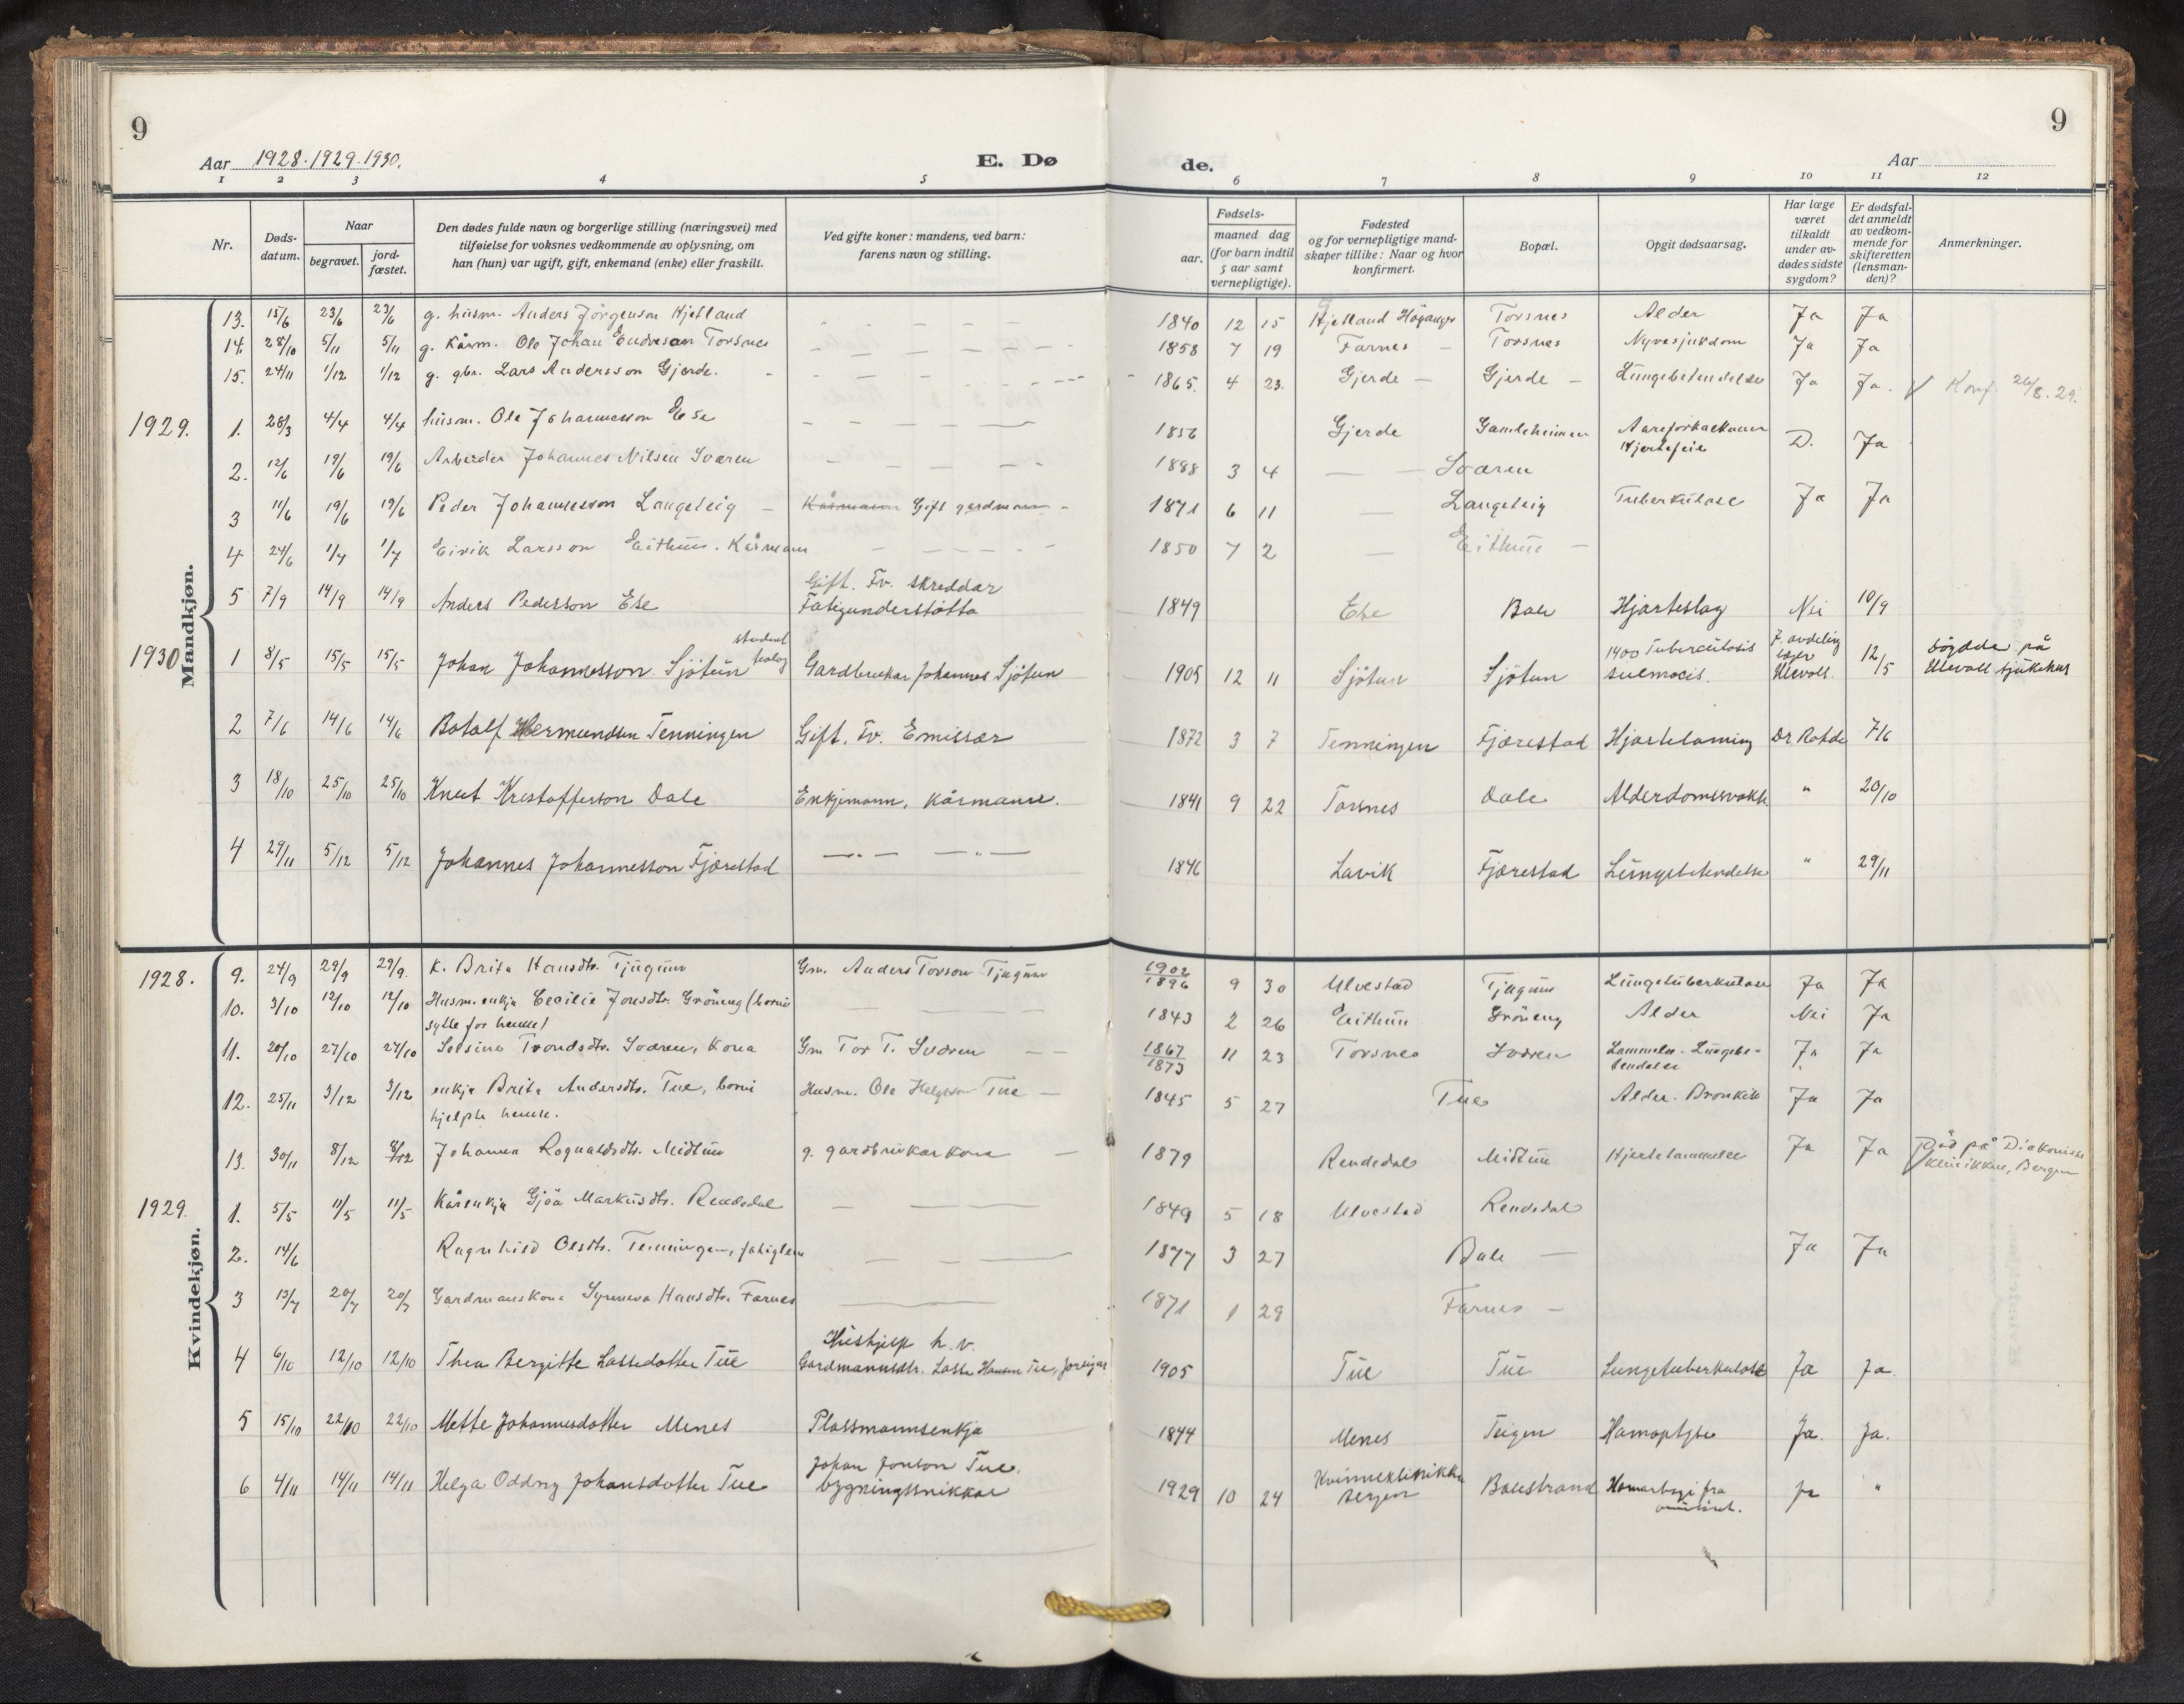 9
9
Aar 1928-1929-1930.
E. Dø
de.
Aar
1 2 3 4 5 6 7 8 9 10 11 12
Nr.
Døds-datum.
Naar
begravet.
jord-fæstet.
Den dødes fulde navn og borgerlige stilling (næringsvei) med
tilføielse for voksnes vedkommende av oplysning, om
han (hun) var ugift, gift, enkemand (enke) eller fraskilt.
Ved gifte koner: mandens, ved barn:
farens navn og stilling.
Fødsels-
aar.
maaned dag
(for barn indtil
5 aar samt
vernepligtige).
Fødested
og for vernepligtige mand-
skaper tillike: Naar og hvor
konfirmert.
Bopæl.
Opgit dødsaarsag.
Har læge
været
tilkaldt
under av-
dødes sidste
sygdom?
Er dødsfal-
det anmeldt
av vedkom-
mende for
skifteretten
(lensman-
den)?
Anmerkninger.
Mandkjøn.
13. 15/6 23/6 23/6 g. husm. Anders Jörgenson Hjetland 1840 12 15 Hjetland Höyanger Torsnes Alder Ja Ja
14. 28/10 5/11 5/11 g. Kårm. Ole Johan Endreson Torsnes 1858 7 19 Farnes Torsnes Nyresjukdom Ja Ja
15. 24/11 1/12 1/12 g. gbr. Lars Andersson Gjerde. 1865. 4 23. Gjerde Gjerde Lungebetendelse Ja Ja. Konf. 26/8.29.
1929. 1. 28/3 4/4 4/4 husm. Ole Johannesson Ese 1856 Gjerde Gamleheimen
Hjertefeil D. Ja
2. 12/6 19/6 19/6 Arbeider Johannes Nilsen Sværen 1888 3 4 Sværen
3 11/6 19/6 19/6 Peder Johannesson Langeteig Kårmann Gift gardmann 1871 6 11 Langeteig Tuberkulose Ja Ja
4 24/6 1/7 1/7 Eirik Larsson Eithun. Kårmann 1850 7 2 Eithun
Gift. Fv. skreddar
5 7/9 14/9 14/9 Anders Pederson Ese Fatigunderstøtta 1849 Ese Bale Hjarteslag Nei 10/9
student
teolog
1930 1 8/5 15/5 15/5 Johan Johannesson Sjötun Gardbrukar Johannes Sjötun 1905 12 11 Sjötun Sjötun 1400 Tuberculosis
Ullevoll. 12/5 döydde på
Ullevoll sjukehus
2 7/6 14/6 14/6 Botolf Hermundsen Tenningen Gift. Fv. Emissær 1872 3 7 Tenningen Fjærestad Hjartelaming Dr. Rohde 7/6
3 18/10 25/10 25/10 Knut Kristofferson Dale Enkjemann, Kårmann. 1841 9 22 Torsnes Dale Alderdomssvakh. " 20/10
4 29/11 5/12 5/12 Johannes Johannesson Fjærestad —"— —"— 1846 Lavik Fjærestad Lungebetendelse " 29/11
Kvindekjøn.
1928. 9. 24/9 29/9 29/9. K. Brita Hansdtr. Tjugum Gm. Anders Torson Tjugum 1902
1896 9 30 Ulvestad Tjugum Lungetuberkulose Ja Ja
10. 3/10 12/10 12/10 Husm. enkja Cecilie Jonsdtr. Gröneng (borni
sytte for henne) 1843 2 26 Eithun Gröneng Alder Nei Ja
11. 20/10 27/10 27/10 Trondsdtr. Sværen, Kona Gm Tor T. Sværen 1867
1873 11 23 Torsnes Sværen Lammelse - Lungebe-
tendelse Ja Ja
12. 25/11 3/12 3/12 enkja Brita Andersdtr. Tue, borni
hjelpte henne. Husm. Ole Helgeson Tue 1845 5 27 Tue Alder. Bronkit Ja Ja
13. 30/11 8/12 8/12 Johanna Rognaldsdtr. Midtun g. gardbrukarkone 1879 Rendedal Midtun Hjertelammelse Ja Ja Död på Diakonisse
klinikken, Bergen
1929. 1. 5/5 11/5 11/5 Kårenkja Gjöa Markusdtr. Rendedal 1849 5 18 Ulvestad Rendedal
2. 14/6 Ragnhild Olsdtr. Tenningen, fatiglem 1877 3 27 Bale Ja Ja
3 13/7 20/7 20/7 Gardmannskona Synneva Hansdtr. Farnes 1871 1 29 Farnes
Hushjelp h. v.
4 6/10 12/10 12/10 Thea Bergitte Lassedotter Tue Gardmannsdtr. Lasse Hansen Tue, 1905 Tue Tue Lungetuberkulose Ja Ja.
5 15/10 22/10 22/10 Mette Johannesdotter Menes Plassmannsenkja 1844 Menes Teigen Hamoptyse Ja. Ja.
Johan Jonson Tue.
6 4/11 14/11 14/11 Helga Oddny Johansdotter Tue bygningssnikkar 1929 10 24 Kvinneklinikken
Bergen Balestrand fra ja "